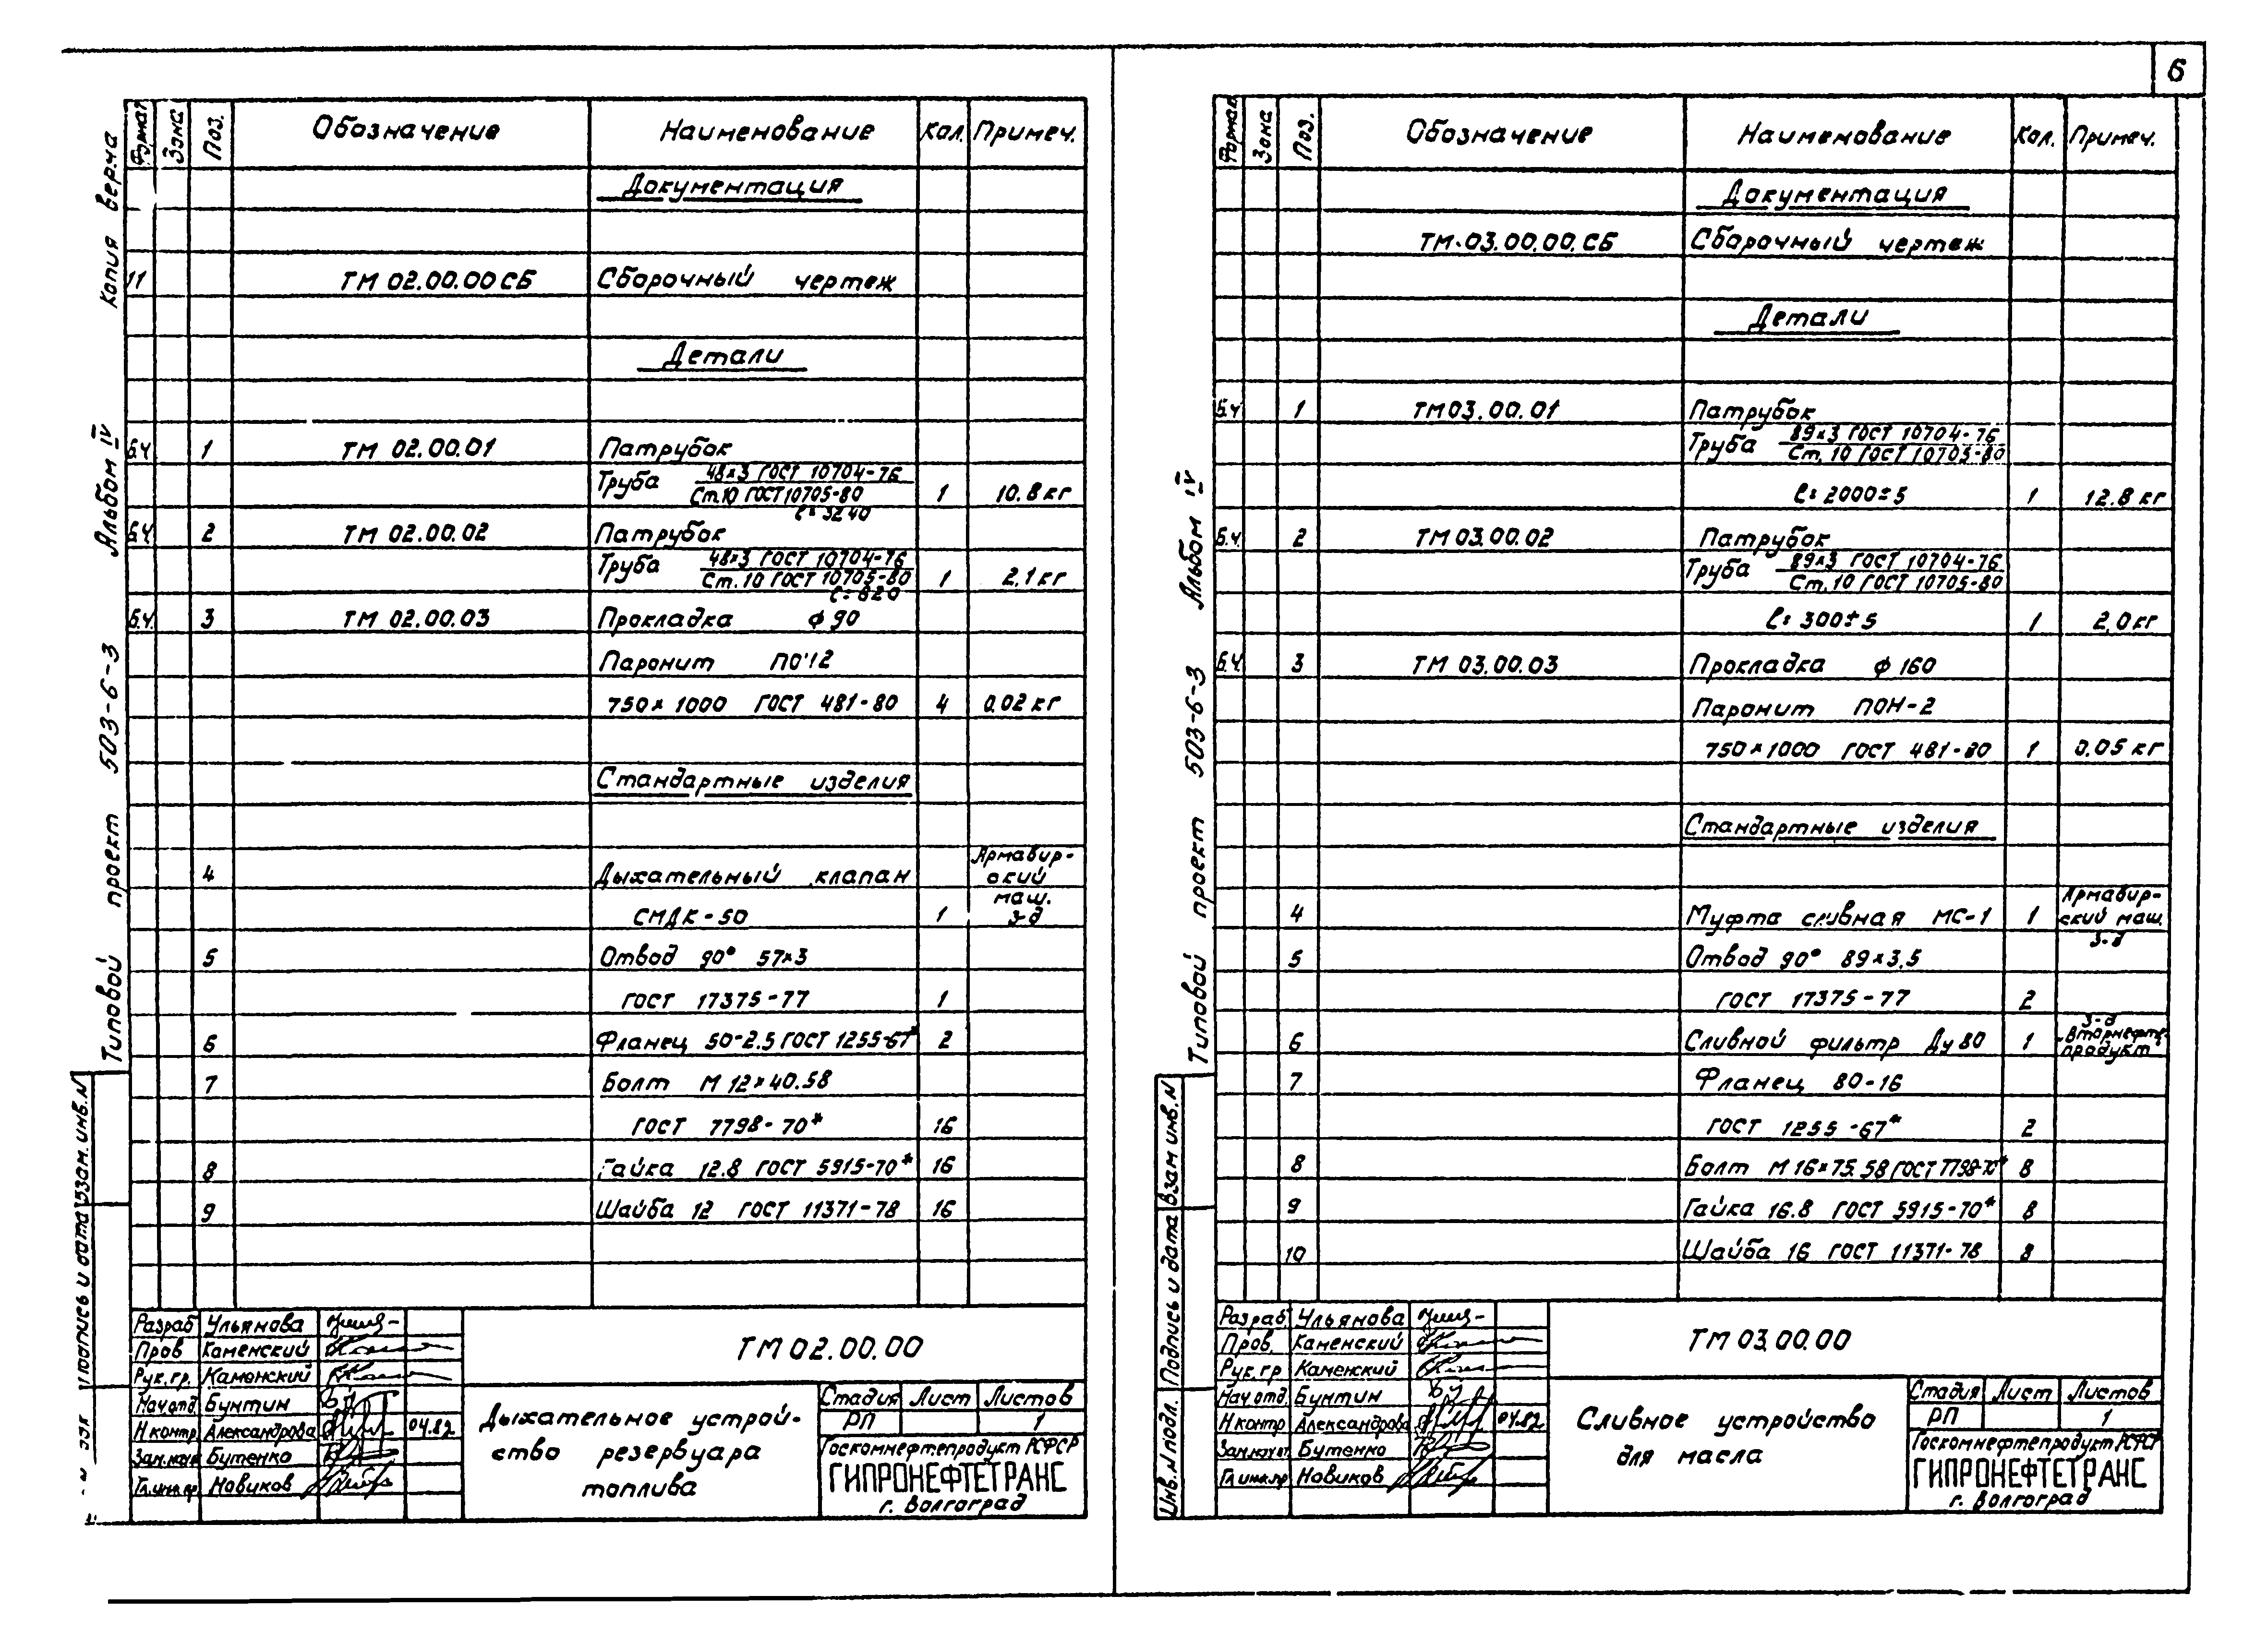 6
Копия верна
Альбом IV
Типовой проект 503-6-3
Взам. инв. N
Подпись и дата
Формат Зона Поз. Обозначение Наименование Кол. Примеч.
Документация
11 ТМ 02.00.00 СБ Сборочный чертеж
Детали
Б.Ч. 1 ТМ 02.00.01 Патрубок
Труба 48×3 ГОСТ 10704-76
Ст.10 ГОСТ 10705-80 1 10.8 кг
ℓ=3240
Б.Ч. 2 ТМ 02.00.02 Патрубок
Труба 48×3 ГОСТ 10704-76
Ст.10 ГОСТ 10705-80 1 2,1 кг
ℓ=620
Б.Ч. 3 ТМ 02.00.03 Прокладка ф 90
Паронит
750×1000 ГОСТ 481-80 4 0.02 кг
Стандартные изделия
4 Дыхательный клапан Армавир-
ский
маш.
СМДК-50 1 з-д
5 Отвод 90° 57×3
ГОСТ 17375-77 1
6 Фланец 50-2.5 ГОСТ 1255-67* 2
7 Болт М 12×40.58
ГОСТ 7798-70* 16
8 Гайка 12.8 ГОСТ 5915-70* 16
9 Шайба 12 ГОСТ 11371-78 16
Разраб Ульянова
Пров Каменский
Рук.гр. Каменский
Нач.отд. Бунтин
Н.контр Александрова 04.82
Бутенко
Гл.инж.пр Новиков
ТМ 02.00.00
Дыхательное устрой-
ство резервуара
топлива
Стадия Лист Листов
РП 1
Госкомнефтепродукт РСФСР
ГИПРОНЕФТЕТРАНС
г. Волгоград
Альбом IV
Типовой проект 503-6-3
Взам инв. N
Подпись и дата
Инв. N подл.
Формат Зона Поз. Обозначение Наименование Кол. Примеч.
Документация
ТМ.03.00.00.СБ Сборочный чертеж
Детали
Б.Ч 1 ТМ 03.00.01 Патрубок
Труба 89×3 ГОСТ 10704-76
Ст.10 ГОСТ 10705-80
ℓ=2000±5 1 12.8 кг
Б.Ч. 2 ТМ 03.00.02 Патрубок
Труба 89×3 ГОСТ 10704-76
Ст.10 ГОСТ 10705-80
ℓ=300±5 1 2,0 кг
Б.Ч. 3 ТМ 03.00.03 Прокладка ф 160
Паронит ПОН-2
750×1000 ГОСТ 481-80 1 0.05 кг
Стандартные изделия
4 Муфта сливная МС-1 1 Армавир-
ский маш.
з-д
5 Отвод 90° 89×3,5
ГОСТ 17375-77 2
з-д
6 Сливной фильтр Ду 80 1 Вторнефте-
продукт
7 Фланец 80-16
ГОСТ 1255-67* 2
8 Болт М 16×75.58 ГОСТ 7798-70* 8
9 Гайка 16.8 ГОСТ 5915-70* 8
10 Шайба 16 ГОСТ 11371-78 8
Разраб. Ульянова
Пров. Каменский
Рук.гр Каменский
Нач.отд. Бунтин
Н контр Александрова 04.82
Бутенко
Гл инж.пр Новиков
ТМ 03.00.00
Сливное устройство
для масла
Стадия Лист Листов
РП 1
Госкомнефтепродукт РСФСР
ГИПРОНЕФТЕТРАНС
г. Волгоград